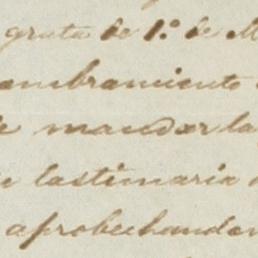 grata de 1.º de M
ombramiento
e mandar la
lastimaria
aprobechando